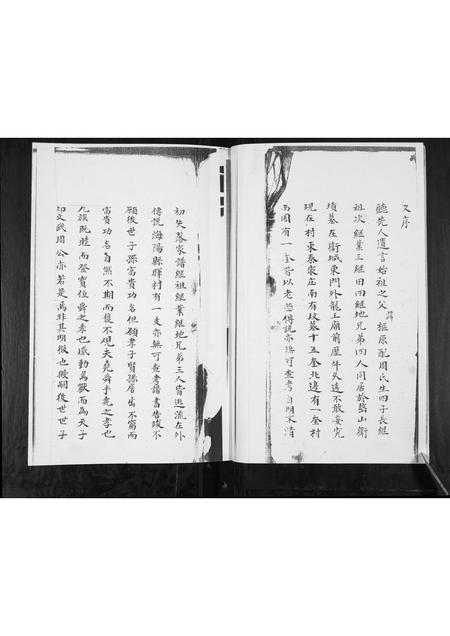 又序
聽先人遺言始祖之父諱樞原配周氏生四子長經
祖次經業三經田四經地兄弟四人同居於鰲山衛
墳墓在衛城東門外龍王廟前歷年久遠不敢妄究
現在村東秦家庄南有坟墓十五奎北邊有一奎村
西園有一奎皆以老塋傳説亦無可查考自明末清
初失落家譜經祖經業經地兄弟三人皆逃流在外
傳説海陽縣驛村有一支亦無可查考譜書告竣不
願後世子孫富貴功名但願孝子賢孫層出不窮而
富貴功名自然不期而後不現夫堯舜乎堯之孝也
九族既睦而登寶位舜之孝也感動鳥獸而為天子
文武周公亦若是焉非其明徵也歟嗣後世世子